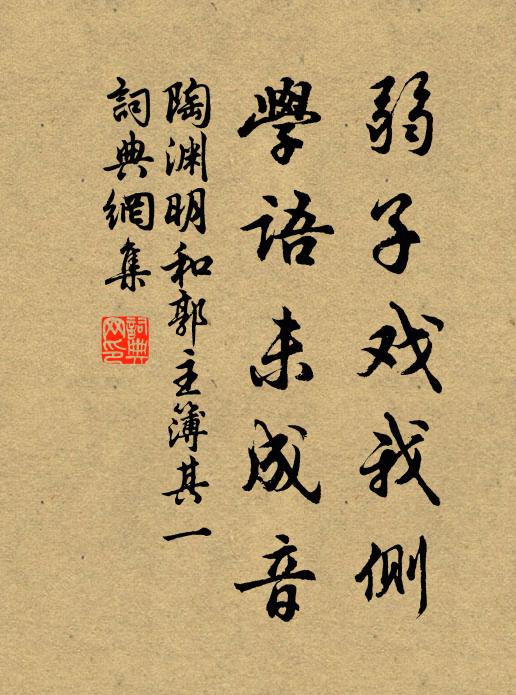 弱子戏我侧
學語未成音
陶渊明和郭主簿其一
詞典網集
詞典網印